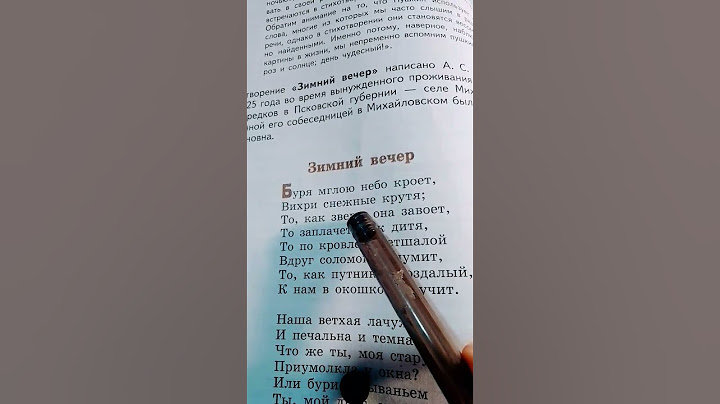 вать в своей
встречаются в стихотвор
Обратим внимание на то, что Пушкин использу
слова, многие из которых мы часто слышим в
речи, однако в стихотворении они становятся
но найденными. Именно потому, наверное, наблю
картины в жизни, мы непременно вспомним пушки
роз и солнце; день чудесный!».
творение «Зимний вечер» написано А. С.
25 года во время вынужденного проживания
редков в Псковской губернии — селе Мих
ной его собеседницей в Михайловском был
новна.
Зимний вечер
Буря мглою небо кроет,
Вихри снежные крутя;
То, как зве она завоет,
То заплачет к дитя,
То по кровле етшалой
Вдруг соломо умит,
То, как путник оздалый,
К нам в окошко учит.
Наша ветхая лачу
И печальна и темна
Что же ты, моя стару
Приумолкла у окна?
Или бури ываньем
Ты, мой